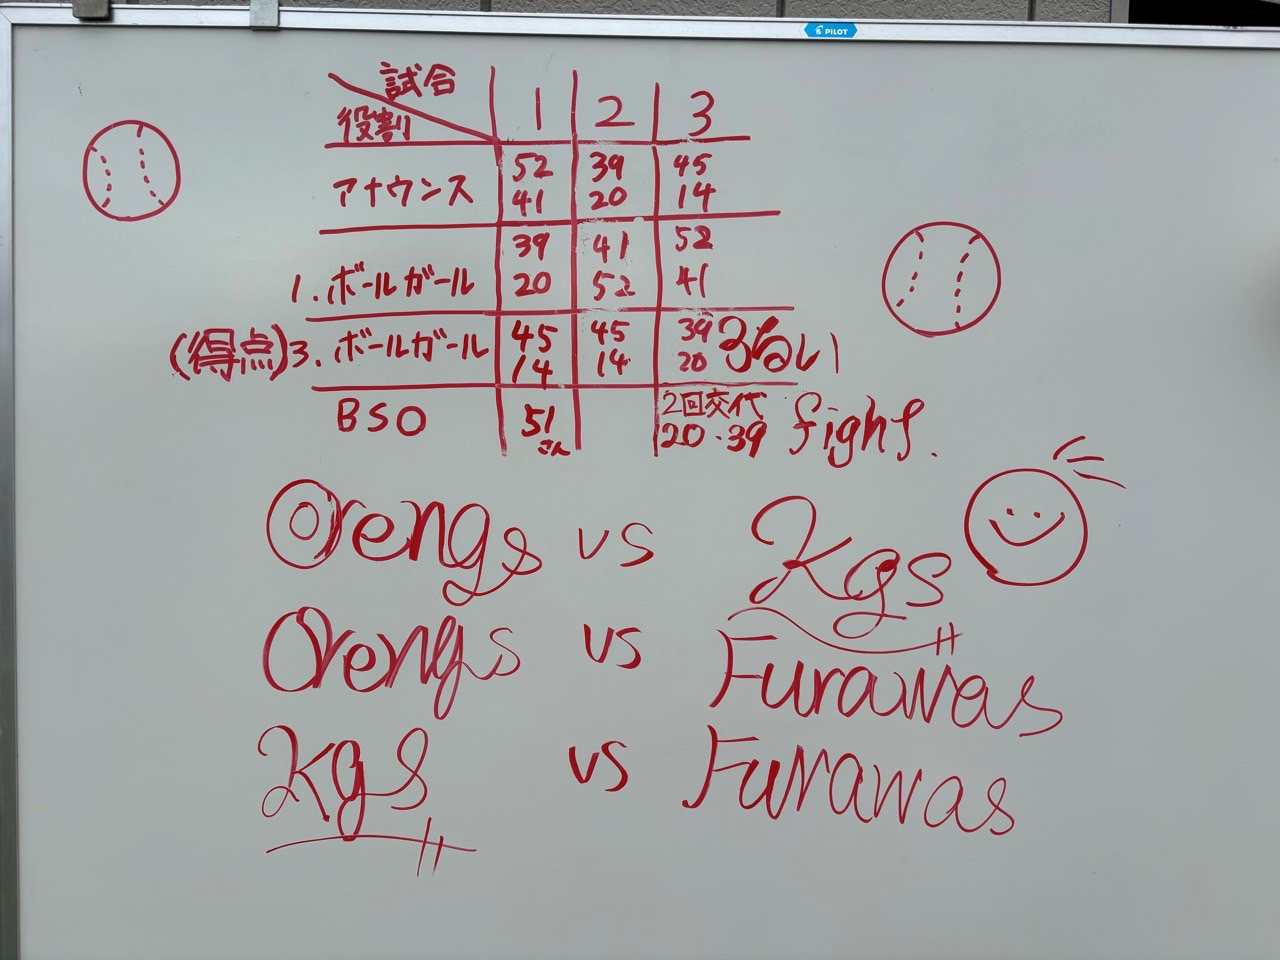 PILOT
試合
役割 1 2 3
アナウンス 52 39 45
41 20 14
39 41 52
1. ボールガール 20 52 41
(得点)3. ボールガール 45 45 39
14 14 20
BSO 51 2回交代
さん 20・39 fight.
Orengs vs Kgs
Orengs vs Furawas
Kgs vs Furawas